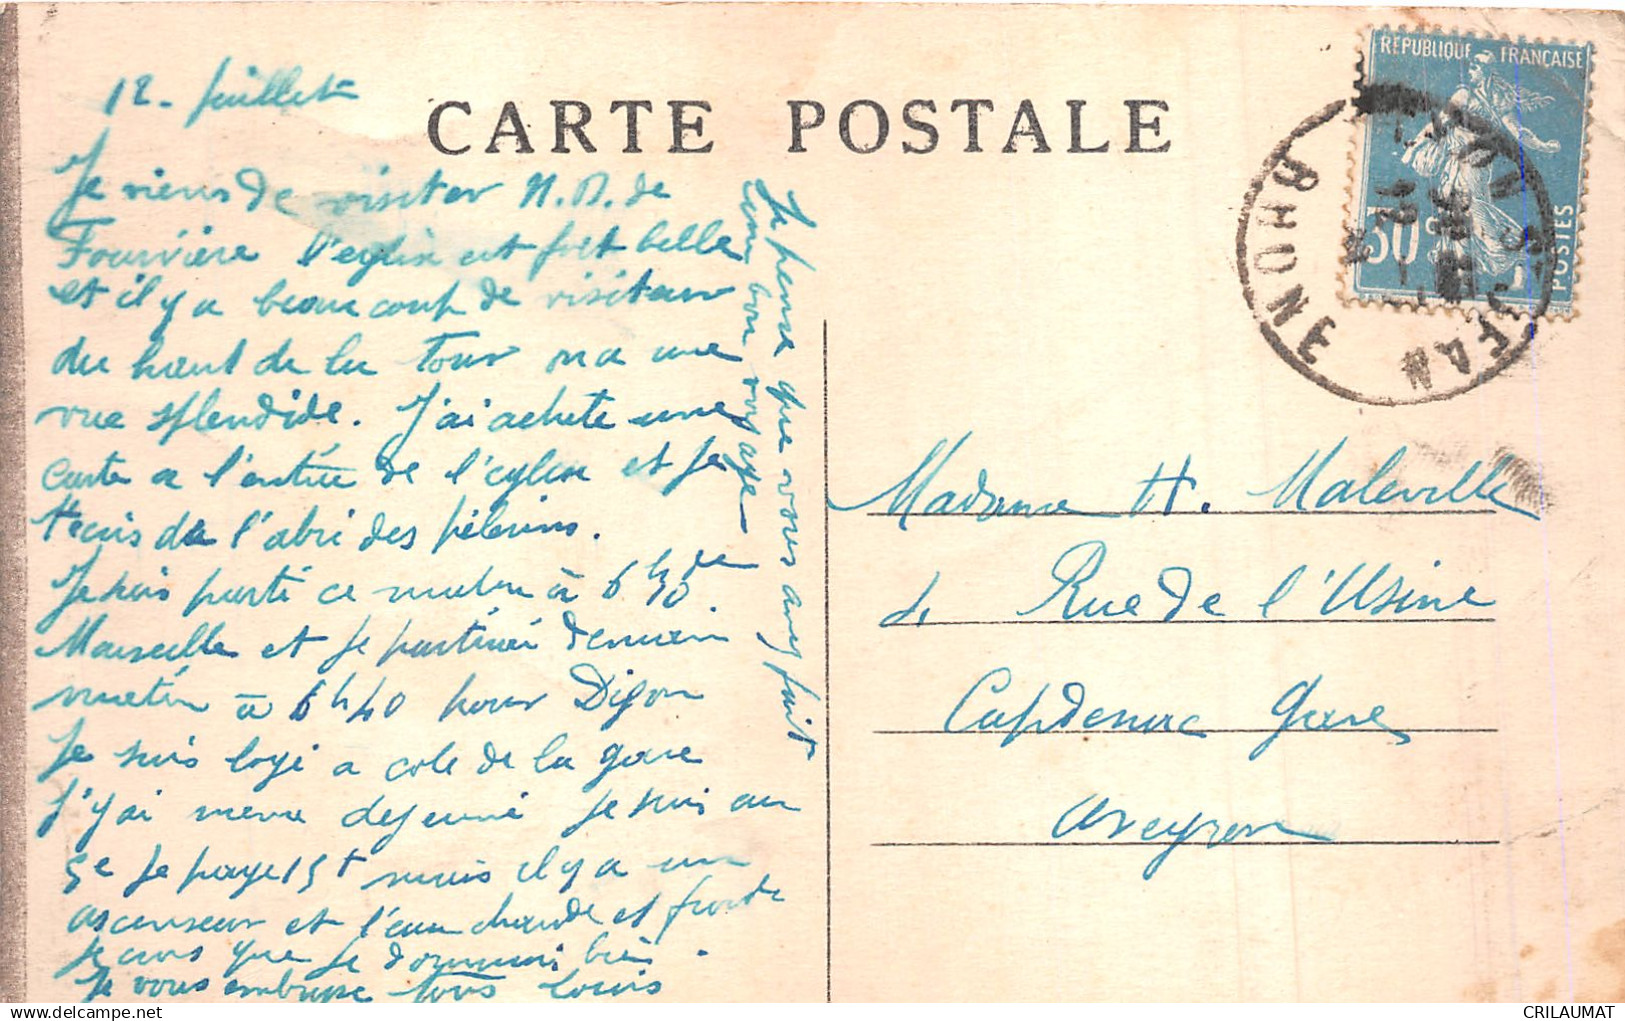 CARTE POSTALE
12. Juillet
Je viens de visiter N. D. de
Fourvière l'eglise est fort belle
et il y a beaucoup de visiteurs
du haut de la Tour on a une
vue splendide. J'ai achete une
Carte a l'entrée de l'eglise et je
t'ecris de l'abri des pèlerins.
Je suis parti ce matin à 6h30 de
Marseille et je partirai demain
matin à 6h40 pour Dijon
Je suis logé a cote de la gare
J'y ai meme dejeuné je suis au
5e je paye 15f mais il y a un
ascenseur et l'eau chaude et froide
je crois que je dormirai bien.
Je vous embrasse tous Louis
Je pense que vous avez fait
un bon voyage
REPUBLIQUE FRANÇAISE
POSTES
30
RHONE
Madame H. Maleville
4 Rue de l'Usine
Capdenac Gare
Aveyron
CRILAUMAT